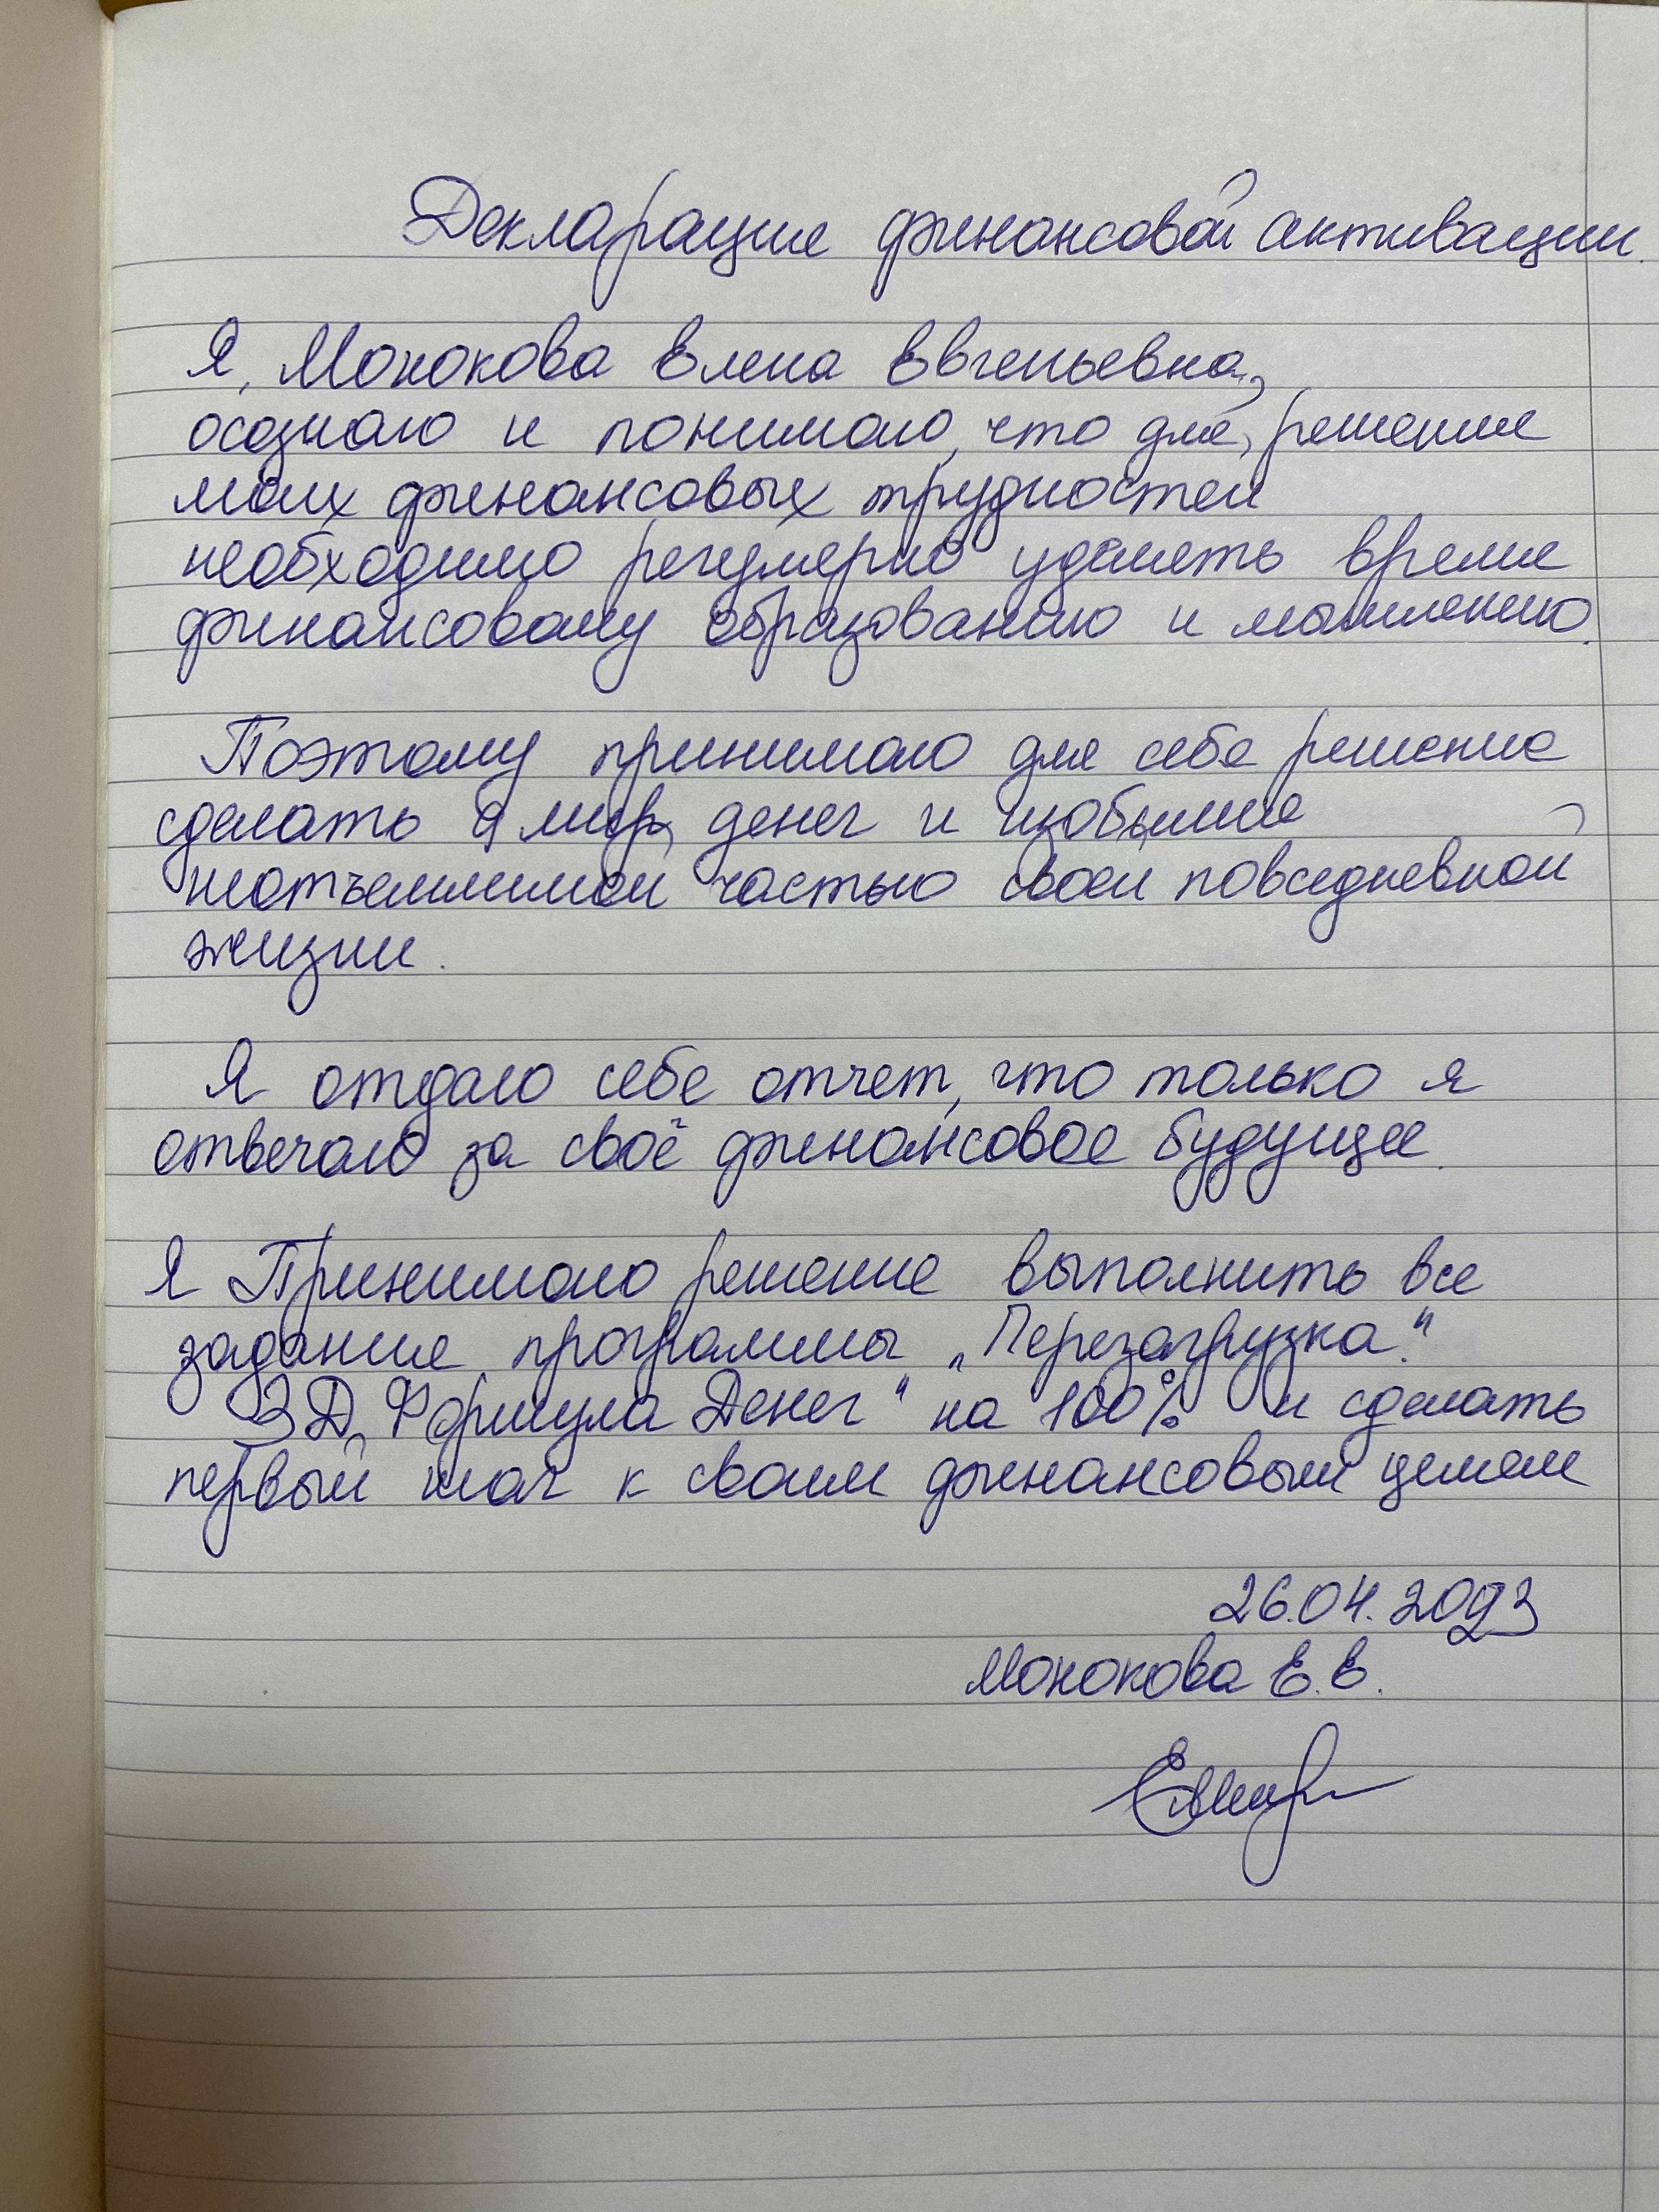 Декларация финансовой активации.
Я, Монокова Елена Евгеньевна,
осознаю и понимаю, что для, решения
моих финансовых трудностей
необходимо регулярно уделять время
финансовому образованию и мышлению.
Поэтому принимаю для себя решение
сделать мир денег и изобилия
неотъемлимой частью своей повседневной
жизни.
Я отдаю себе отчет, что только я
отвечаю за своё финансовое будущее.
Я Принимаю решение выполнить все
задания программы „Перезагрузка."
3Д „Формула Денег" на 100% и сделать
первый шаг к своим финансовым целям
26.04.2023
Монокова Е.Е.